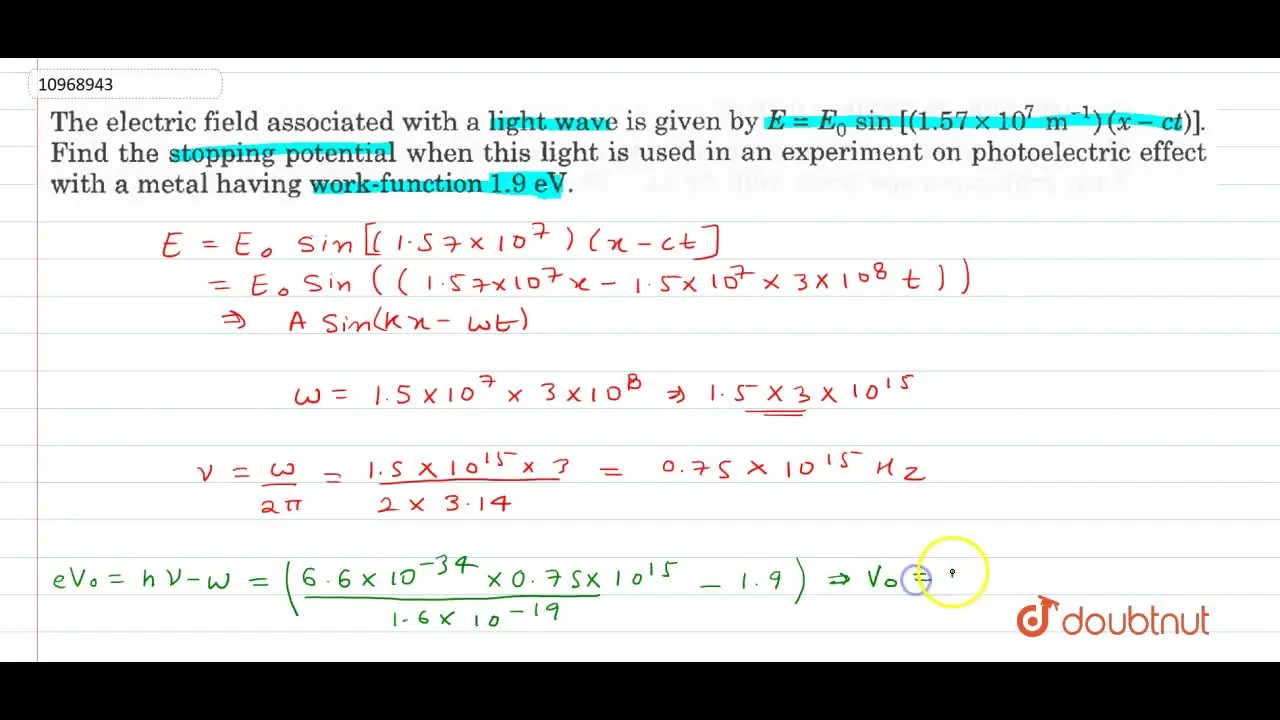 10968943
The electric field associated with a light wave is given by E = E₀ sin [(1.57 × 10⁷ m⁻¹)(x – ct)].
Find the stopping potential when this light is used in an experiment on photoelectric effect
with a metal having work-function 1.9 eV.
E = E₀ sin[(1.57×10⁷)(x–ct]
= E₀ sin((1.57×10⁷x – 1.5×10⁷×3×10⁸t))
⇒ A sin(kx – ωt)
ω = 1.5×10⁷ × 3×10⁸ ⇒ 1.5×3×10¹⁵
ν = ω/2π = 1.5×10¹⁵×3/2×3.14 = 0.75×10¹⁵ Hz
eV₀ = hν–ω = (6.6×10⁻³⁴×0.75×10¹⁵/1.6×10⁻¹⁹ – 1.9) ⇒ V₀ =
doubtnut